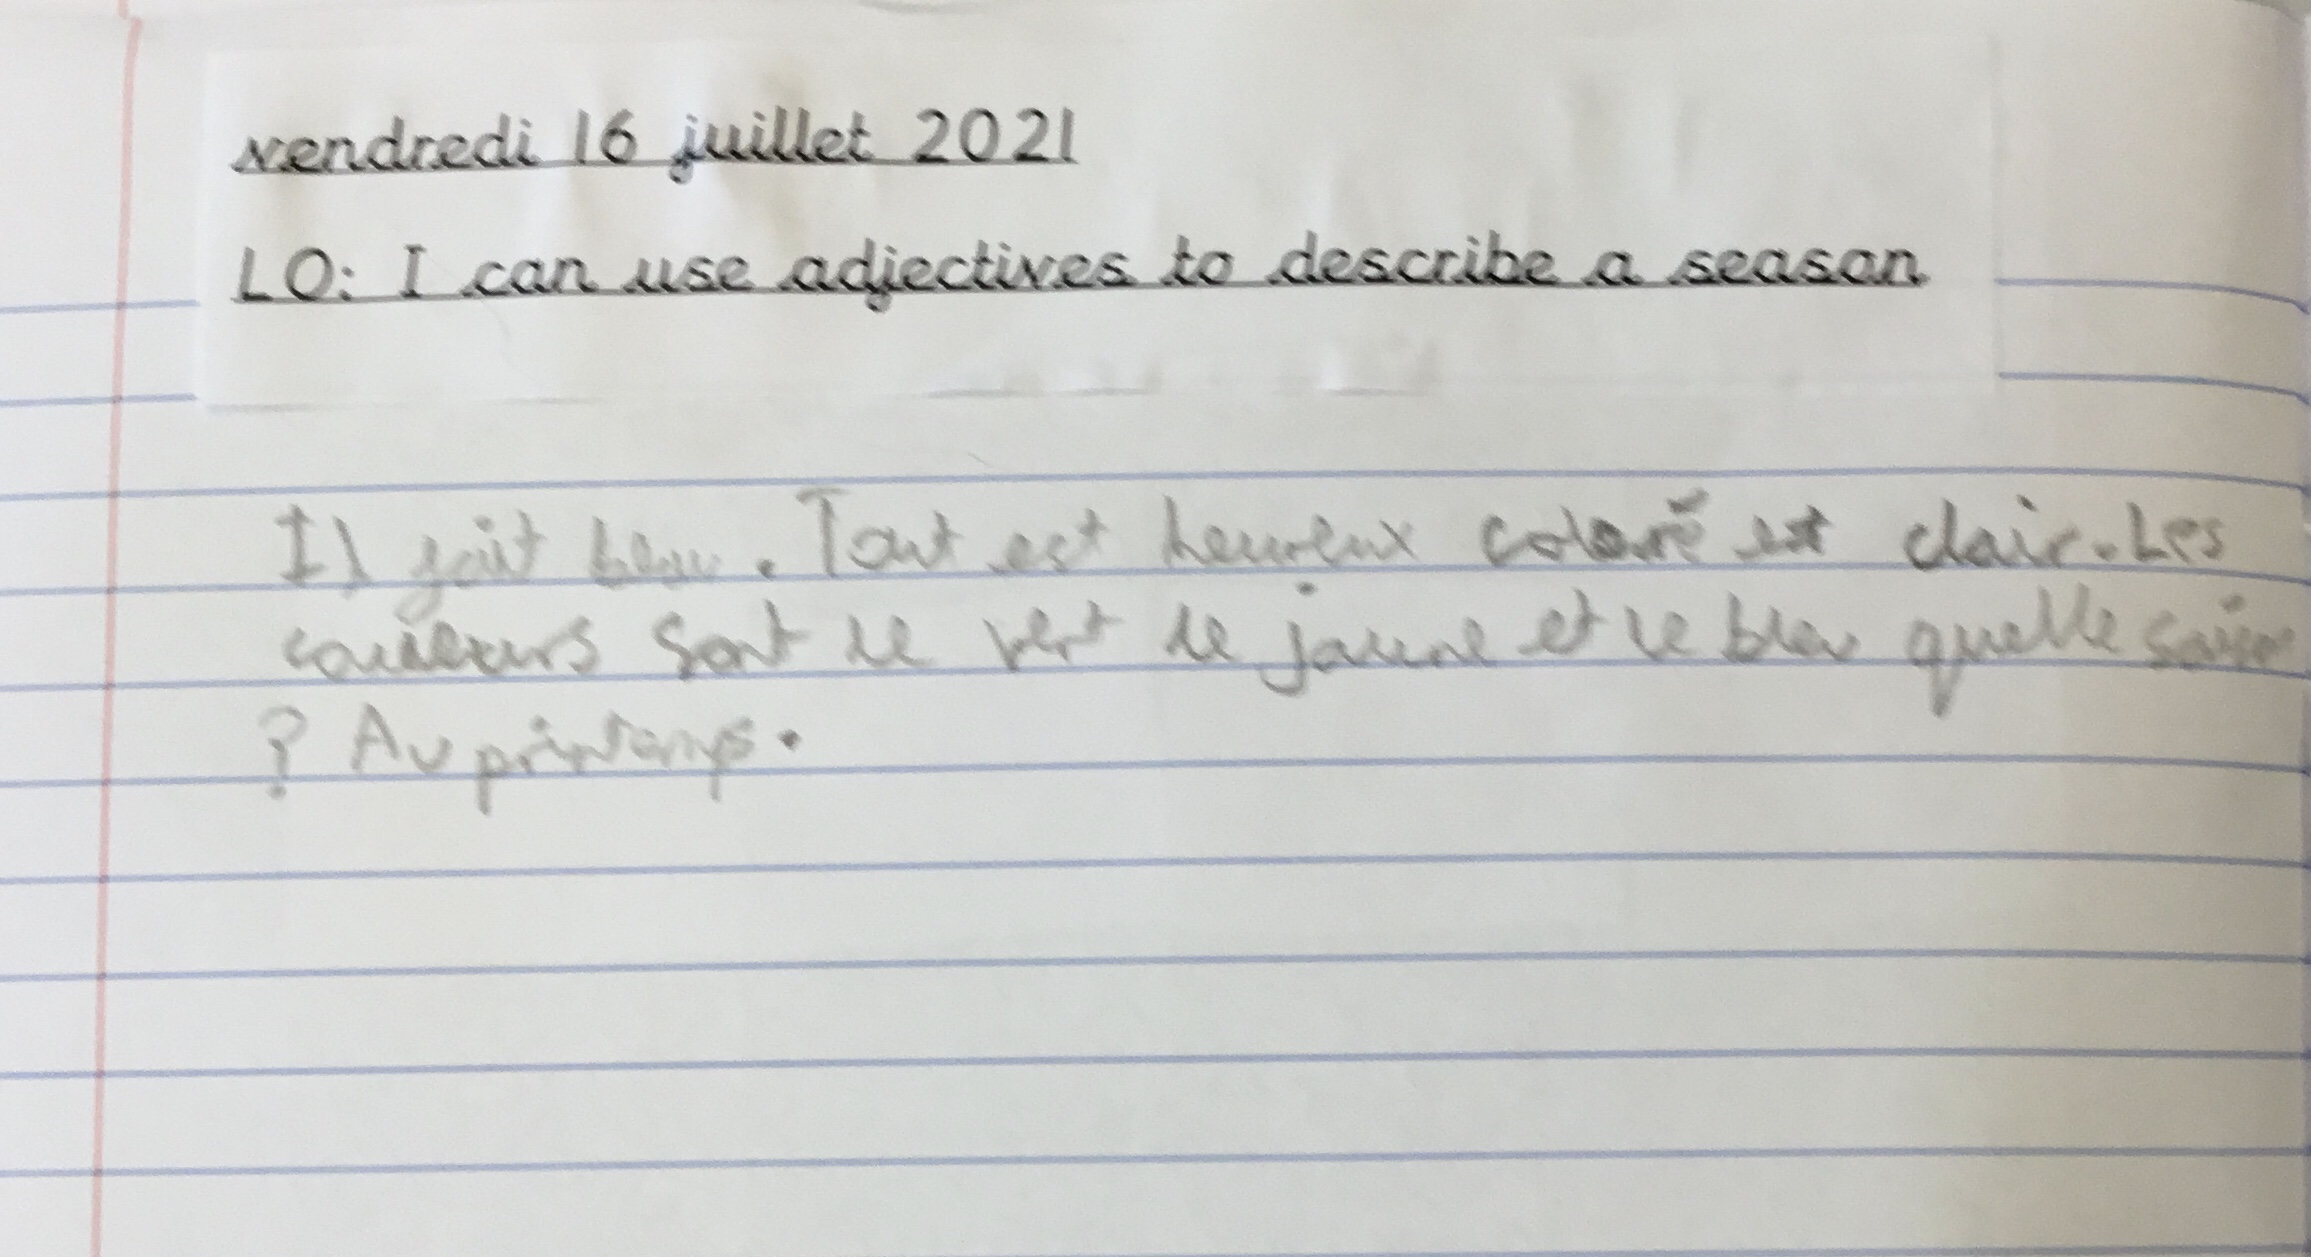 vendredi 16 juillet 2021
LO: I can use adjectives to describe a season
Il fait beau. Tout est heureux coloré est clair. Les
couleurs sont le vert le jaune et le bleu quelle
? Au printemps.